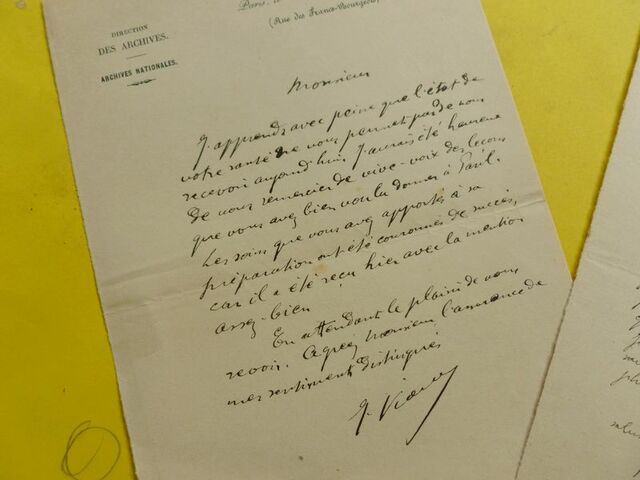 DIRECTION
DES ARCHIVES.
ARCHIVES NATIONALES.
Paris, le
(Rue des Francs-Bourgeois)
Monsieur
J'apprends avec peine que l'état de
votre santé ne vous permet pas de nous
recevoir aujourd'hui. J'aurais été heureux
de vous remercier de vive-voix des leçons
que vous avez bien voulu donner à
Les soins que vous avez apportés à sa
préparation ont été couronnés de succès,
car il a été reçu hier avec la mention
assez-bien
En attendant le plaisir de vous
revoir. Agréez Monsieur l'assurance de
mes sentiments distingués